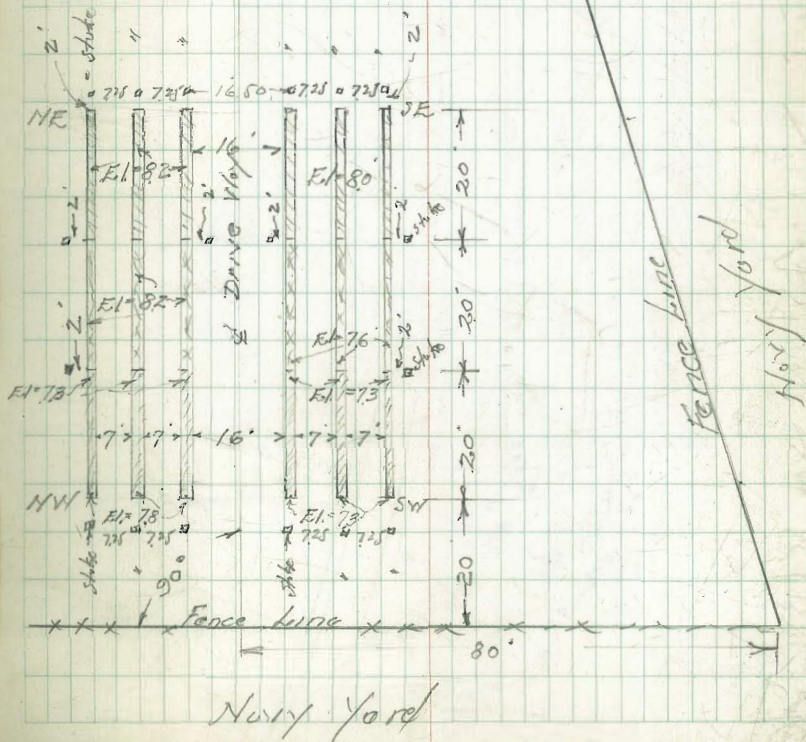 2'
stake
2'
7.25 7.25 16.50 7.25 7.25
NE
SE
16'
El=82
El=80
20'
2'
2'
2'
2'
stake
℄ Drive Way
El=82
20'
2'
El=76
2'
stake
El=73
El=73
7' 7' 16' 7' 7'
20'
NW
SW
El=78
El=73
7.25 7.25
7.25 7.25
stake
stake
90°
20
Fence Line
80'
Navy Yard
Fence Line
Navy Yard